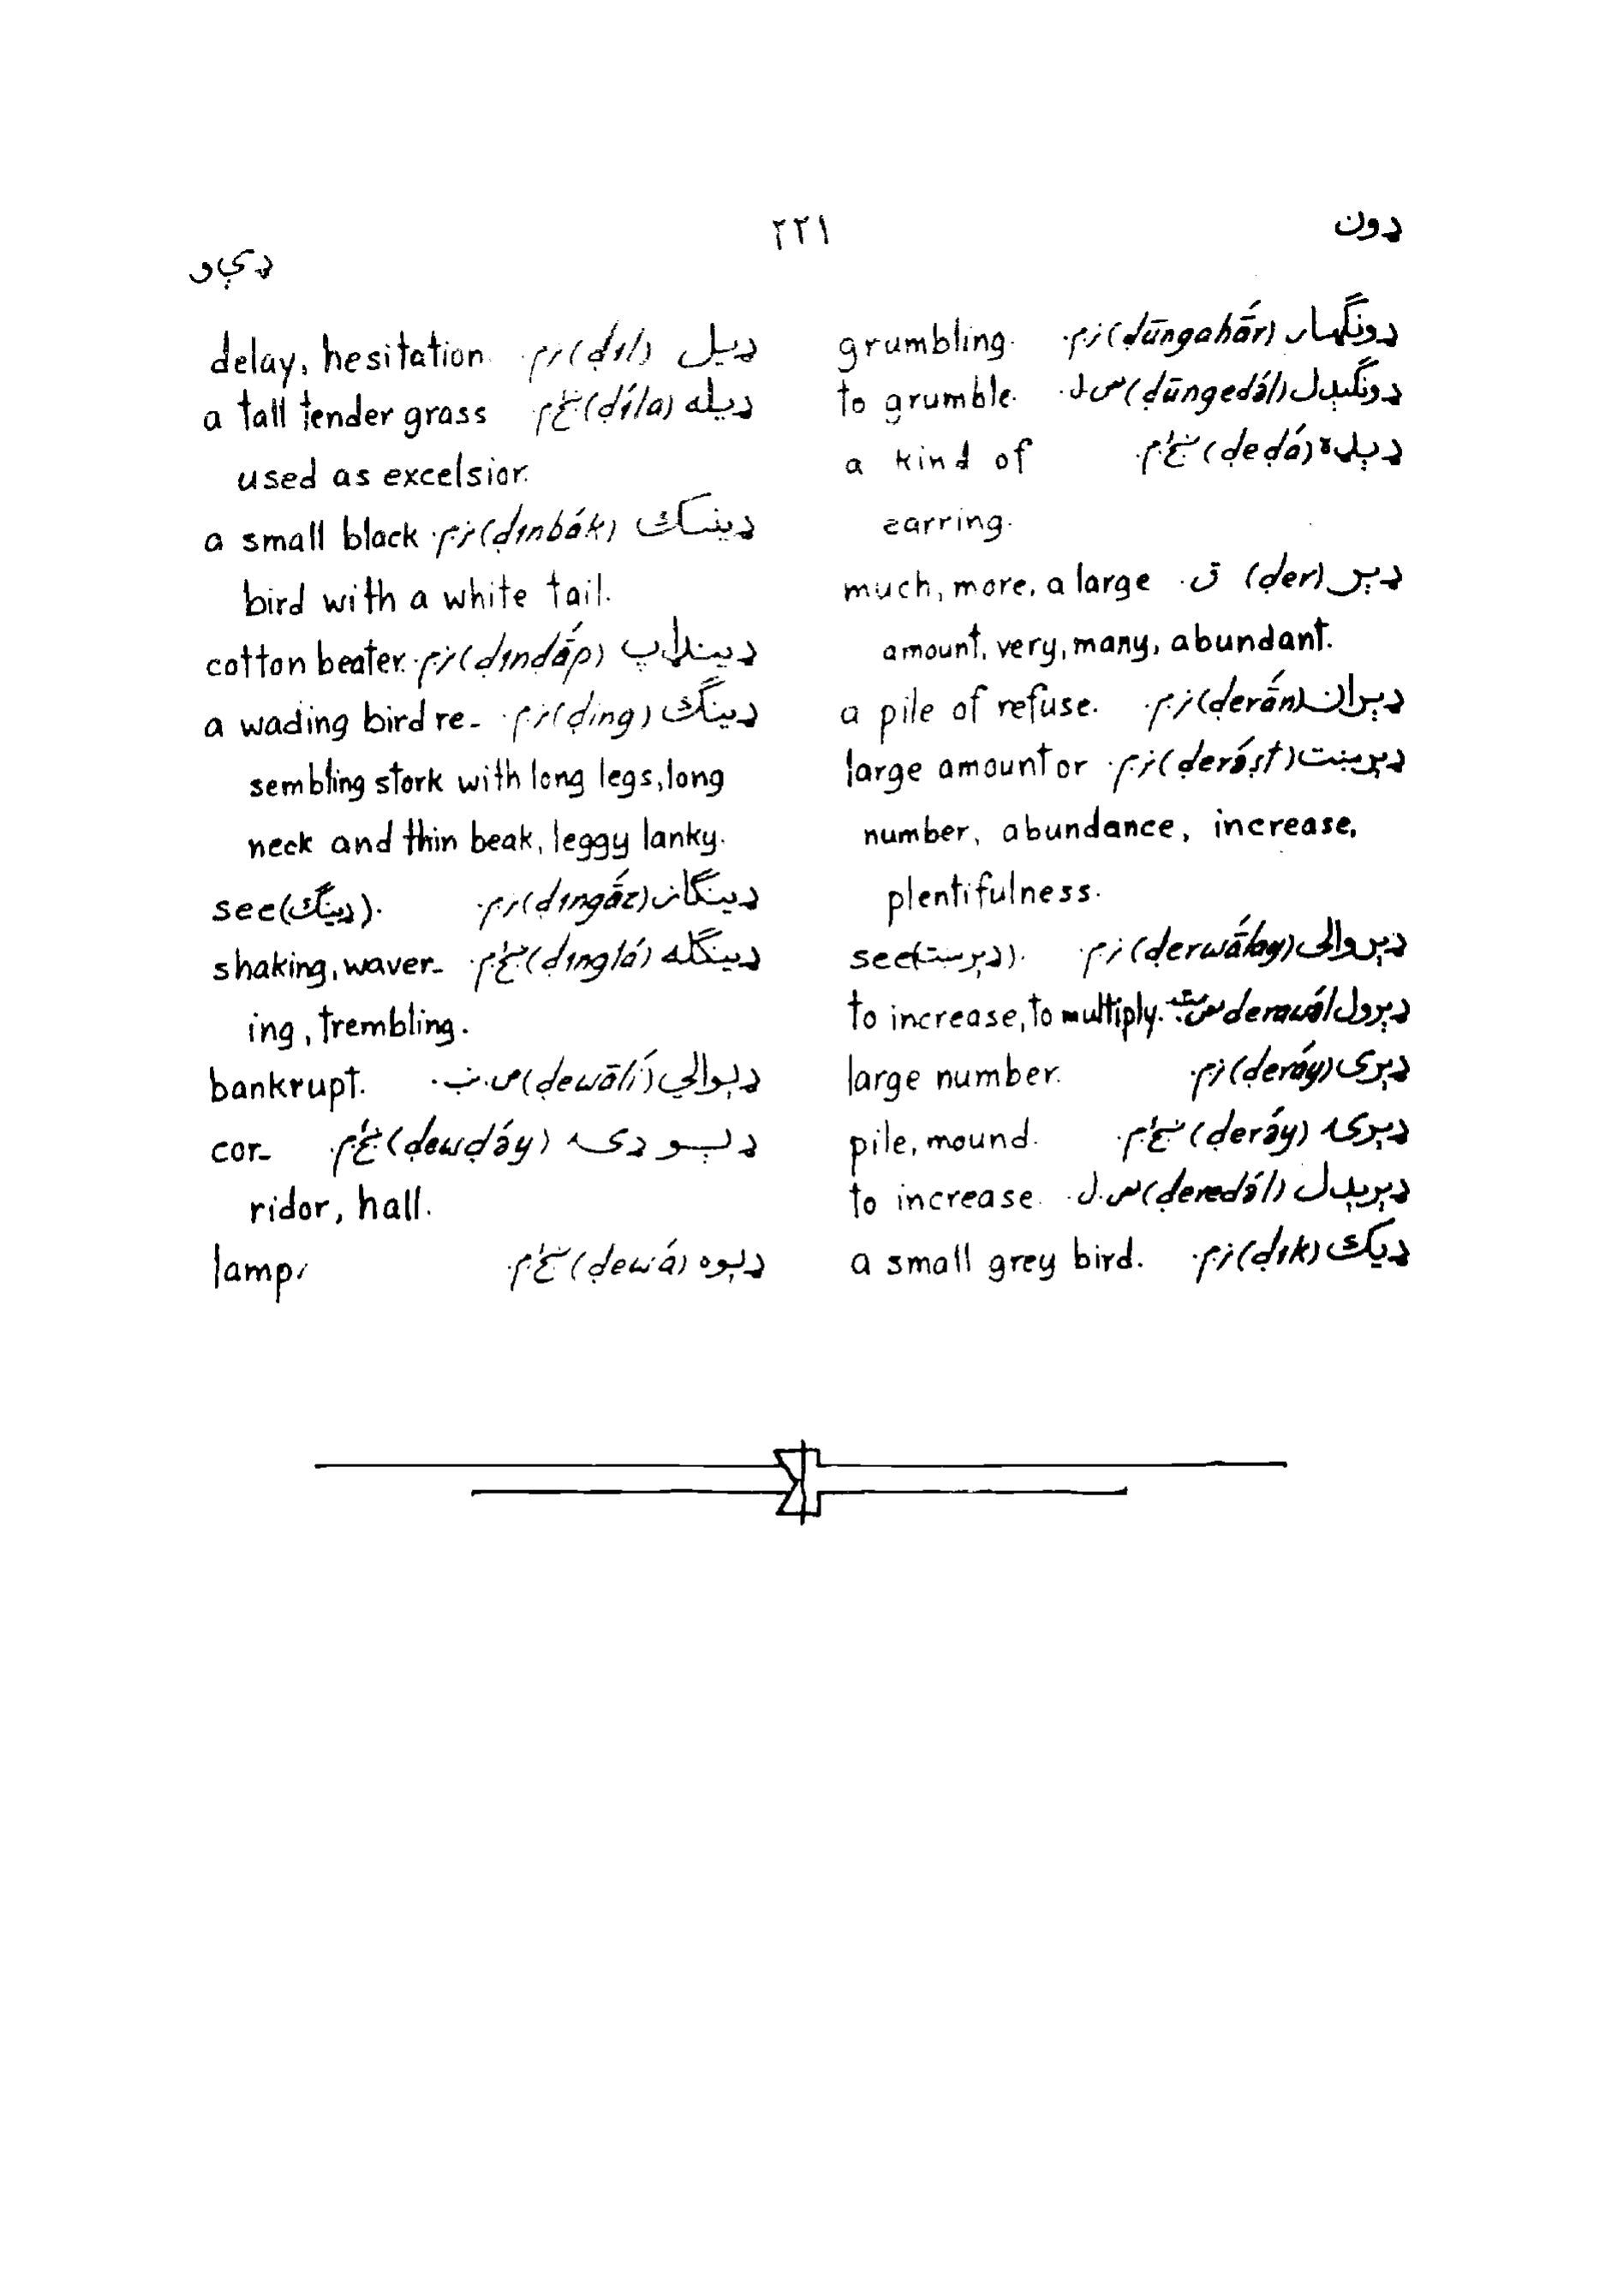 ډون
۲۲۱
ډېو
ډونګهار (ḍūngahā́r) ن.م. grumbling.
ډونګېدل (ḍūngedə́l) س.ل. to grumble.
(ḍeḍá) a kind of
earring.
ډېر (ḍer) ق. much, more, a large
amount, very, many, abundant.
ډېران (ḍerā́n) ن.م. a pile of refuse.
ډېرښت (ḍerə́ṣt) ن.م. large amount or
number, abundance, increase,
plentifulness.
ډېروالی (ḍerwā́lay) ن.م. see (ډېرست).
ډېرول ḍerawə́l to increase, to multiply.
ډېری (ḍeráy) ن.م. large number.
ډېرۍ (ḍerə́y) pile, mound.
ډېرېدل (ḍeredə́l) س.ل. to increase.
ډيک (ḍık) ن.م. a small grey bird.
ډيل (ḍıl) ن.م. delay, hesitation.
ډيله (ḍíla) a tall tender grass
used as excelsior.
(ḍınbák) ن.م. a small black
bird with a white tail.
ډينډاپ (ḍınḍā́p) ن.م. cotton beater.
ډينګ (ḍing) ن.م. a wading bird re-
sembling stork with long legs, long
neck and thin beak, leggy lanky.
ډينګاز (ḍıngā́z) ن.م. see (ډينګ).
ډينګله (ḍınglá) shaking, waver-
ing, trembling.
ډېوالي (ḍewālí) bankrupt.
(ḍewḍə́y) cor-
ridor, hall.
ډېوه (ḍewá) lamp.